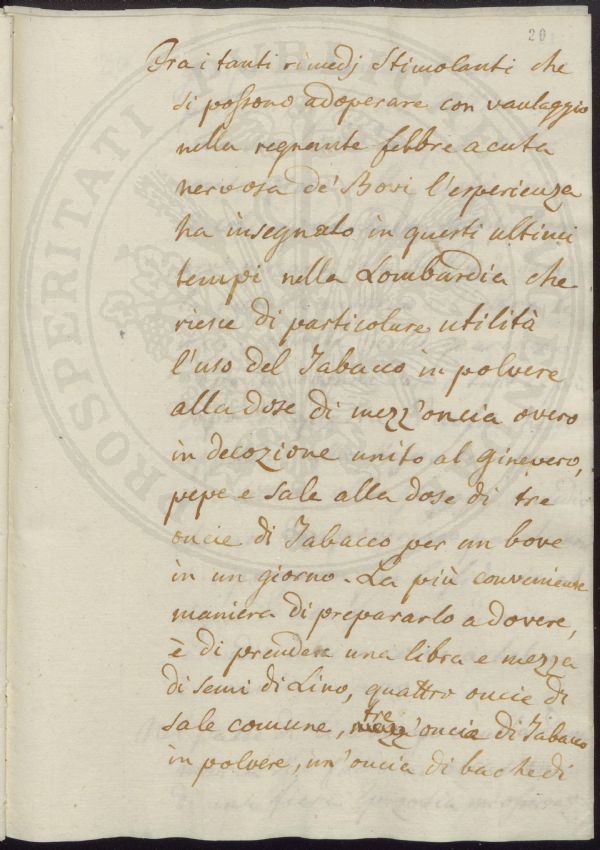 20
Fra i tanti rimedj stimolanti che
si possono adoperare con vantaggio
nella regnante febbre acuta
nervosa de' Bovi l'esperienza
ha insegnato in questi ultimi
tempi nella Lombardia che
riesce di particolare utilità
l'uso del Tabacco in polvere
alla dose di mezz'oncia overo
in decozione unito al ginevero,
pepe e sale alla dose di tre
oncie di Tabacco per un bove
in un giorno. La più conveniente
maniera di prepararlo a dovere,
è di prendere una libra e mezza
di semi di Lino, quattro oncie di
sale comune, tre oncie di Tabacco
in polvere, un'oncia di bache di
PROSPERITATI PUBLICAE